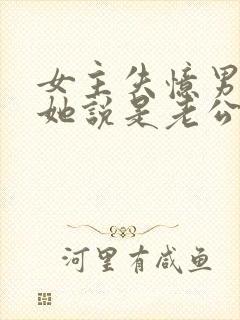 女主失憶男
她說是老公
河里有咸鱼